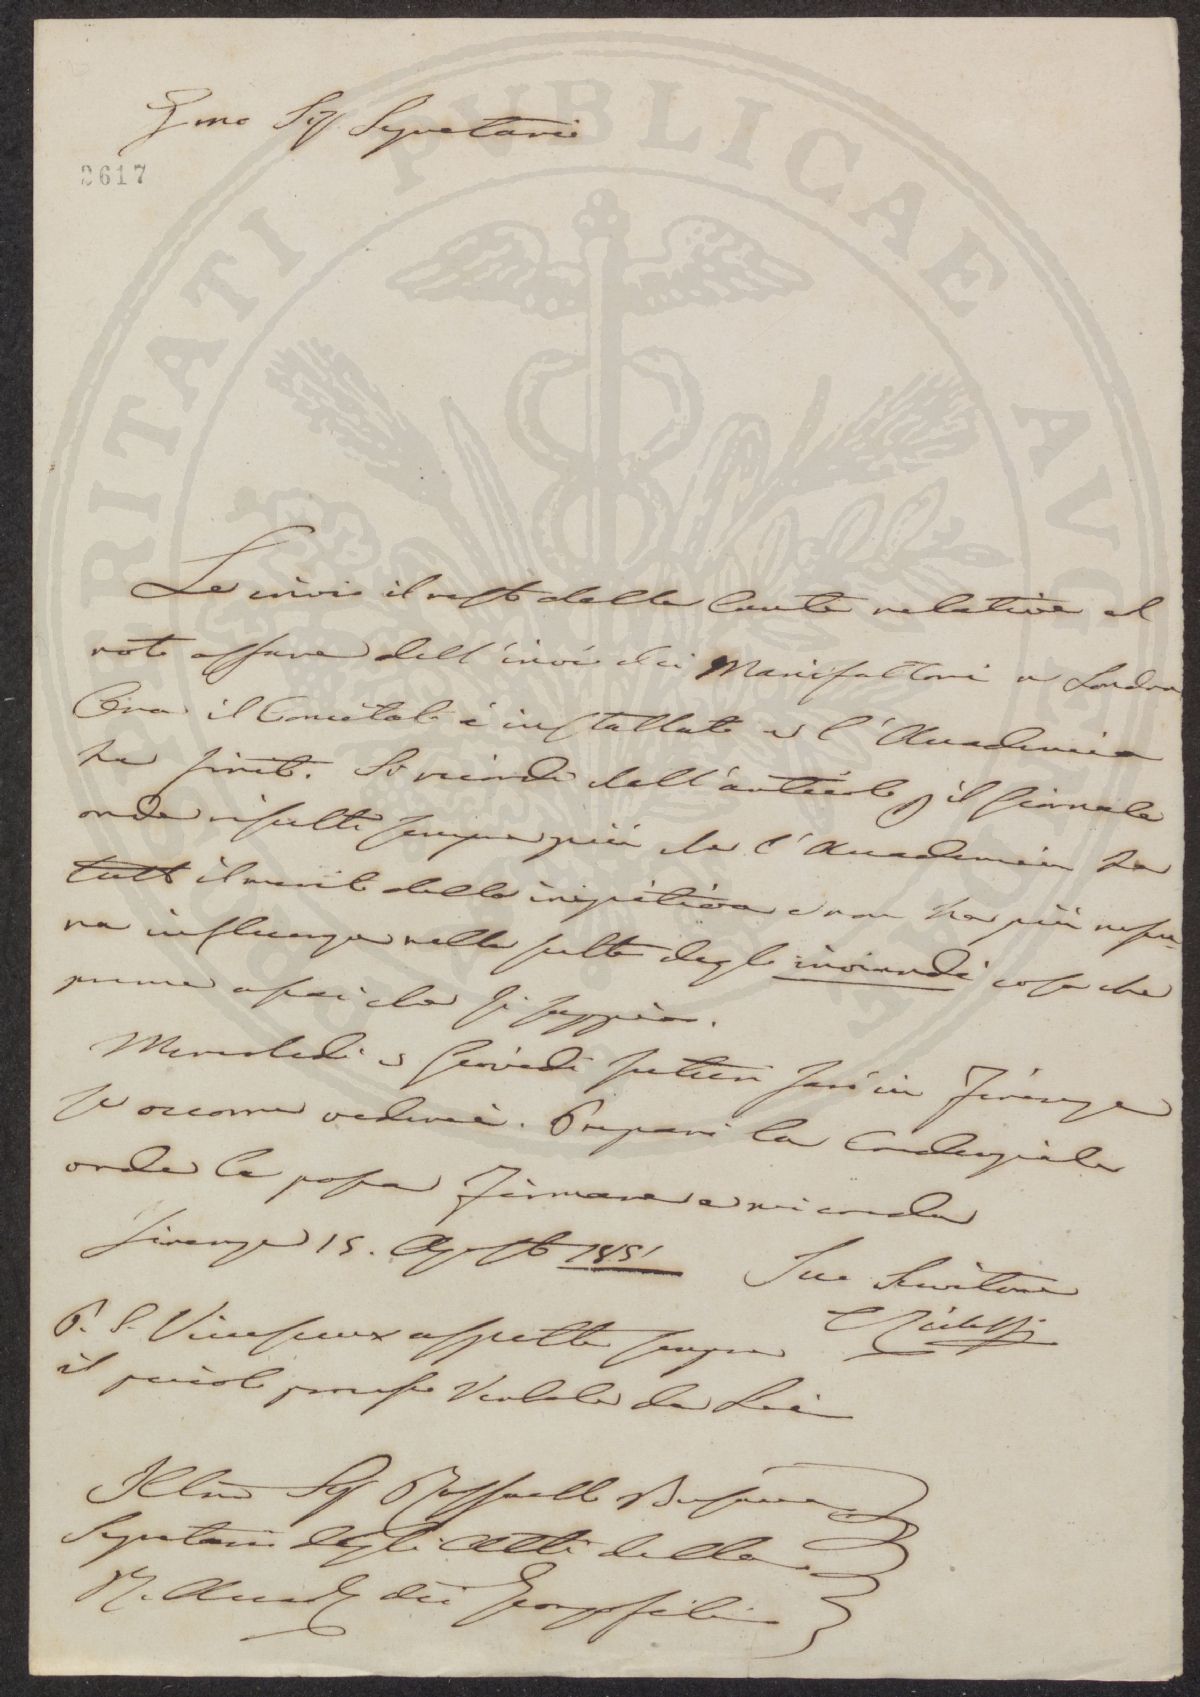 Sig. Segretario
2617
PROSPERITATI PVBLICAE AVGENDAE
Le invio il resto delle Carte relative al
noto affare dell'invio dei Manifattori a Londra
Ora il Comitato è installato e l'Accademia
ha finito. Si ricordi dell'articolo p il Giornale
onde risulti sempre più che l'Accademia ha
tutto il merito della iniziativa e non ha più nessu-
na influenza nella scelta degli inviandi cosa che
preme assai che si sappia.
Mercoledì e Giovedì sarò in Firenze
se occorre vederci. Prepari la
onde la possa firmare e mi creda
Firenze 15. Agosto 1851
Suo Servitore
C Ridolfi
P. S. Vieusseux aspetta sempre
il piccolo processo Verbale da Lei
Illmo Sig Raffaello Busacca
Segretario degli Atti della
R. Accad dei Georgofili